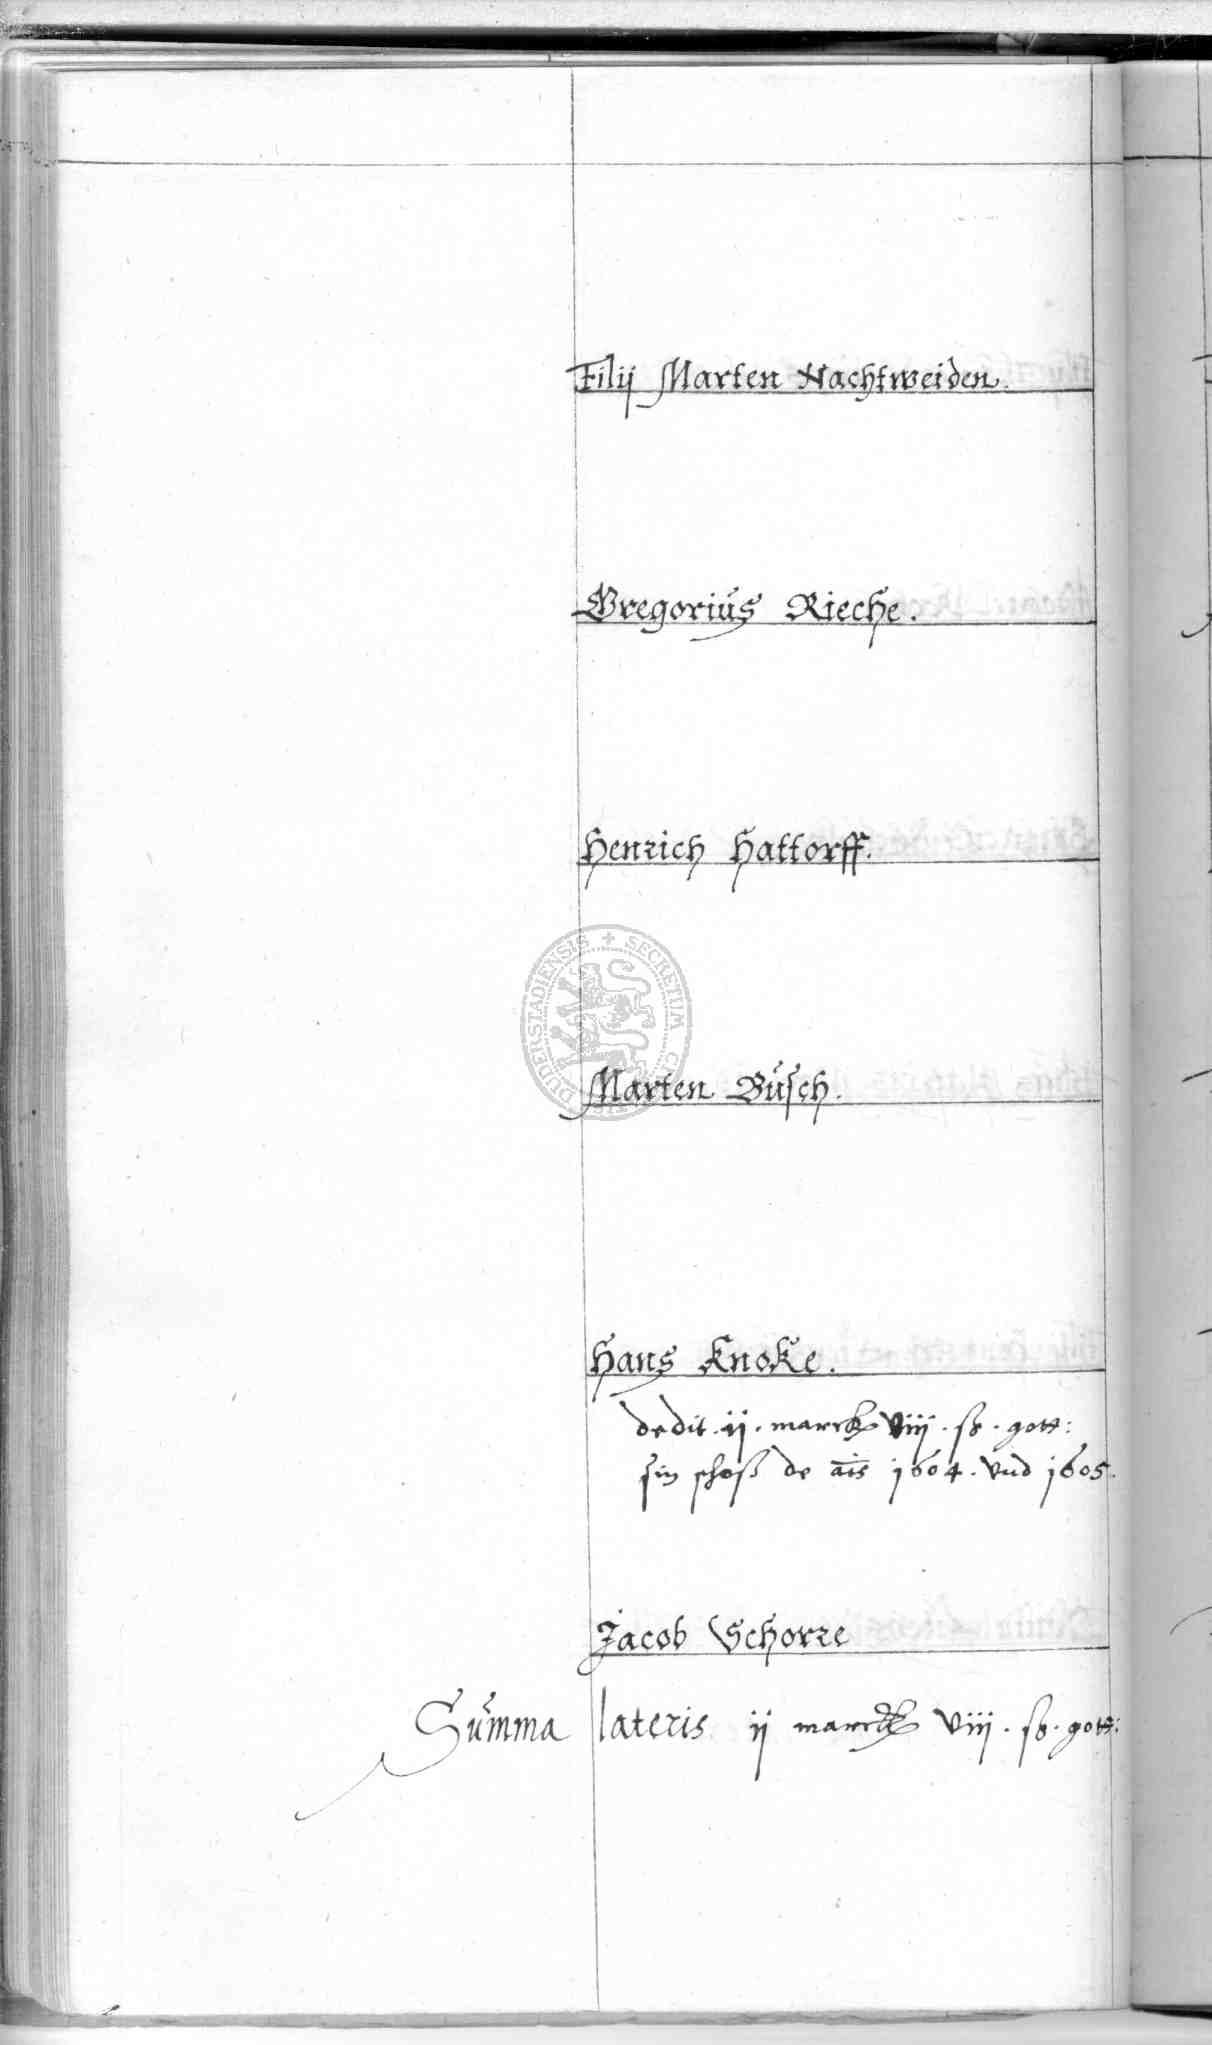 Filij Marten Nachtweiden.
Gregoriús Rieche.
Henrich Hattorff.
SECRETUM DUDERSTADIENSIS
Marten Búsch.
Hans Knoke.
dedit . ij . marck viij . ß . gott:
sin schoß de ais 1604 . vnd 1605.
Jacob Schorre
Súmma lateris ij marck viij . ß . gott: